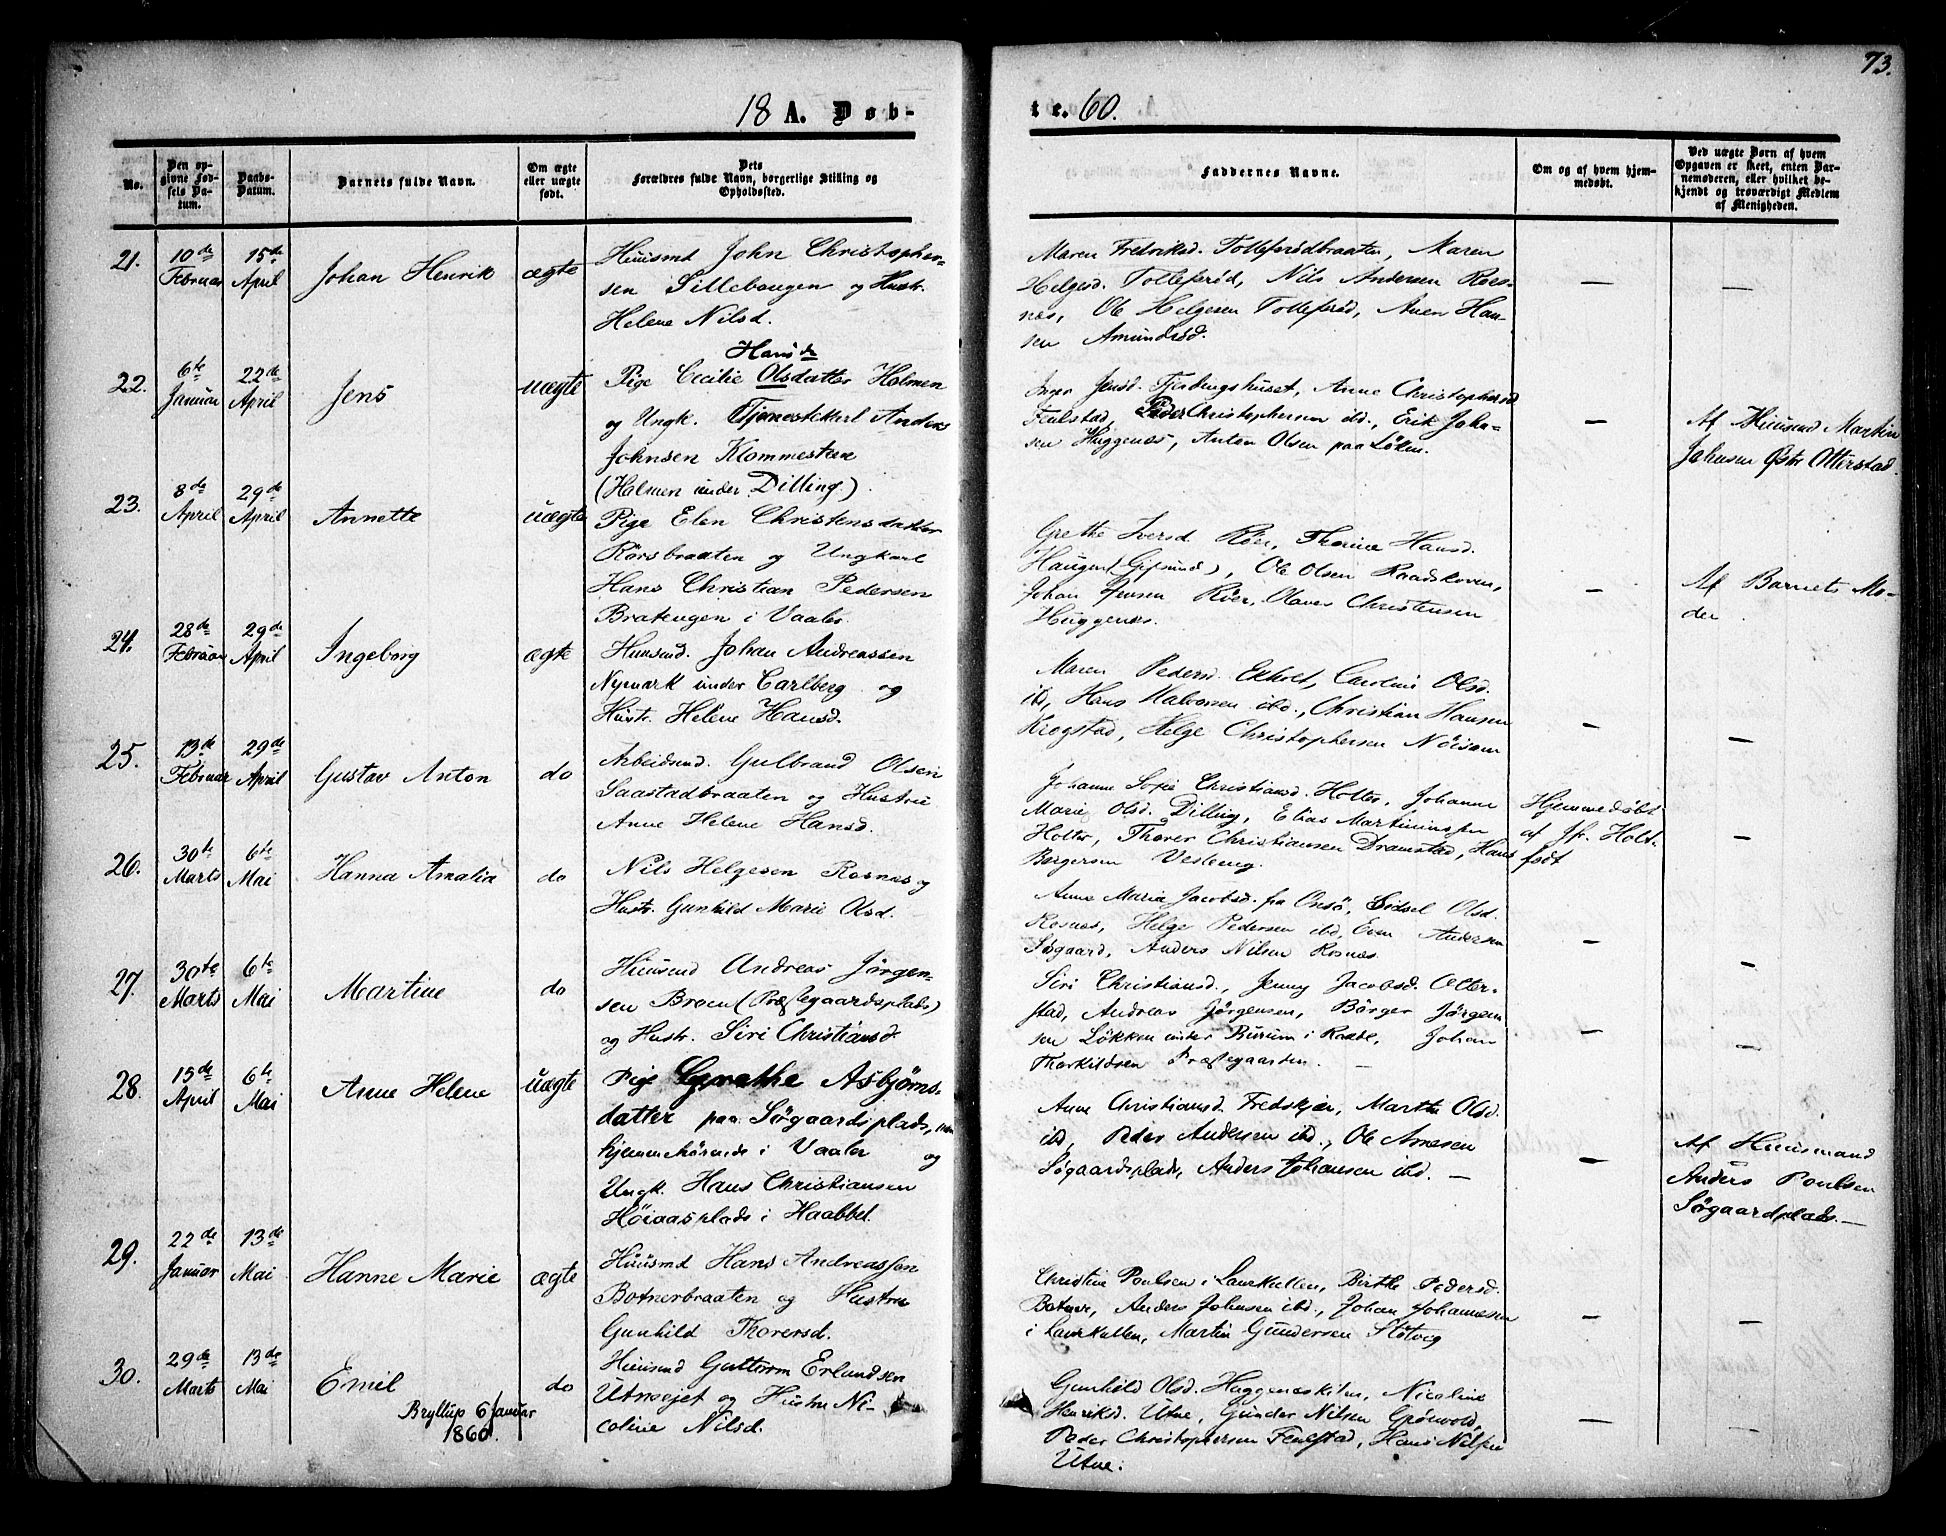 73.
18 A. Døb-
te. 60.
No.
Den op-
givne Fød-
sels Da-
tum.
Daabs-
Datum.
Barnets fulde Navn.
Om ægte
eller uægte
født.
Dets
Forældres fulde Navn, borgerlige Stilling og
Opholdssted.
Faddernes Navne.
Om og af hvem hjem-
medøbt.
Ved uægte Børn af hvem
Opgaven er skeet, enten Bar-
nemoderen, eller hvilket be-
kjendt og troværdigt Medlem
af Menigheden.
21. 10de Februar 15de April Johan Henrik ægte
Huusmd John Christopher-
sen Sillebaugen og Hustr.
Helene Nilsd.
Maren Fredriksd. Tollefsrødbraaten, Maren
Helgesd. Tollefsrød, Nils Andersen Roes-
næs, Ole Helgesen Tollefsrød, Aven Han-
sen Amundrød.
—
—
22. 6te Januar 22de April Jens uægte
Hansd
Pige Cecilie Olsdatter Holmen
og Ungk. Tjenestekarl Anders
Johnsen Klommesteen
(Holmen under Dilling)
Inger Jensd. Fjerdingshuset, Anne Christophersd
Feulstad, Peder Christophersen ibd., Erik John-
sen Huggenæs, Anton Olsen paa Løken.
—
Af Huusmd Martin
Johnsen Østre Otterstad.
23. 8de April 29de April Annette uægte
Pige Elen Christensdatter
Rørsbraaten og Ungkarl
Hans Christian Pedersen
Bratengen i Vaaler.
Grethe Iversd Röer, Thorine Hansd.
Haugen (Gipsund), Ole Olsen Raadskoven,
Johan Jensen Röer, Olaves Christensen
Huggenæs.
—
Af Barnets Mo-
der.
24. 28de Februar 29de April Ingeborg ægte
Huusmd. Johan Andreassen
Nymark under Carlberg og
Hustr. Helene Hansd.
Maren Pedersd. Ekholt, Caroline Olsd.
ibd, Hans Halvorsen ibd., Christian Hansen
Krogstad, Helge Christophersen Nöisom
—
—
25. 13de Februar 29de April Gustav Anton do
Arbeidsmd. Gulbrand Olsen
Saastadbraaten og Hustrue
Anne Helene Hansd.
Johanne Sofie Christiansd. Holter, Johanne
Marie Olsd. Dilling, Elias Martiniussen
Holter, Thorer Christiansen Dramstad, Hans
Børgersen Vesleng.
Hjemmedøbt
af Jfr. Holt-
fodt
—
26. 30te Marts 6te Mai Hanna Amalia do
Nils Helgesen Rosnæs og
Hustr. Gunhild Marie Olsd.
Anne Maria Jacobsd. fra Onsö, Sidsel Olsd.
Rosnæs, Helge Pedersen ibd, Even Andersen
Søgaard, Anders Nilsen Rosnæs.
—
—
27. 30te Marts 6te Mai Martine do
Huusmd Andreas Jørgen-
sen Broen (Præstegaardsplads)
og Hustr. Siri Christiansd.
Siri Christiansd., Jenny Jacobsd. Otter-
stad, Andreas Jørgensen, Börger Jørgen
sen Løkken under Burum i Raade, Johan
Thorkildsen Præstegaarden. —
—
—
28. 15de April 6te Mai Anne Helene uægte
Pige Grethe Asbjørns-
datter paa Søgaardsplads, men
hjemmehørende i Vaaler og
Ungk. Hans Christiansen
Höiaasplads i Haabbel.
Anne Christiansd. Fredskjær, Marthe Olsd.
ibd, Peder Andersen ibd., Ole Arnesen
Søgaardsplads, Anders Johansen ibd. —
—
Af Huusmand
Anders Poulsen
Søgaardplads. —
29. 22de Januar 13de Mai Hanne Marie ægte
Huusmd Hans Andreassen
Botnerbraaten og Hustru
Gunhild Thorersd.
Christine Poulsen i Laurkullen, Birthe Pedersd.
Botner, Anders Johnsen ibd., Johan Johannessen
i Laurkullen, Martin Gundersen Støtvig
—
—
30. 29de Marts 13de Mai Emil do
Bryllup 6 Januar
1860.
Huusmd Guttorm Erlandsen
Utnesejet og Hustru Ni-
coline Nilsd.
Gunhild Olsd. Huggenæskiln, Nicoline
Henriksd. Utne, Gunder Nilsen Grönvold,
Peder Christophersen Feulstad, Hans Nilsen
Utne.
—
—